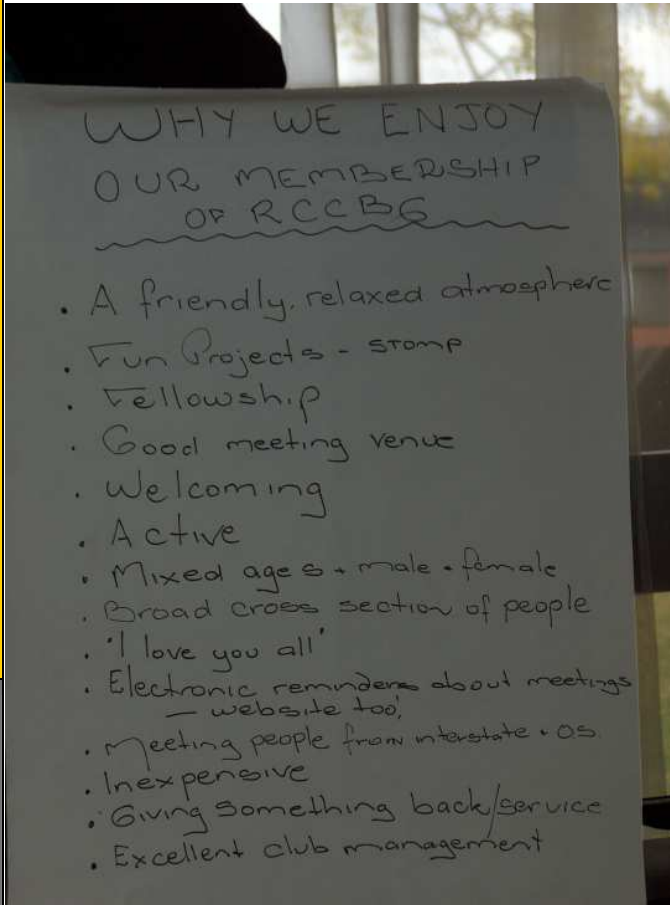 WHY WE ENJOY
OUR MEMBERSHIP
OF RCCBG
. A friendly, relaxed atmosphere
. Fun Projects - STOMP
. Fellowship
. Good meeting venue
. Welcoming
. Active
. Mixed ages + male + female
. Broad cross section of people
. 'I love you all'
. Electronic reminders about meetings
— website too,
. Meeting people from interstate + OS.
. Inexpensive
. Giving something back/service
. Excellent club management